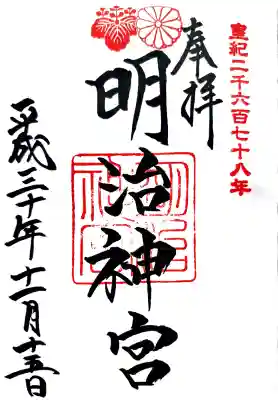 皇紀二千六百七十八年
奉拝
明治神宮
平成三十年十一月十五日